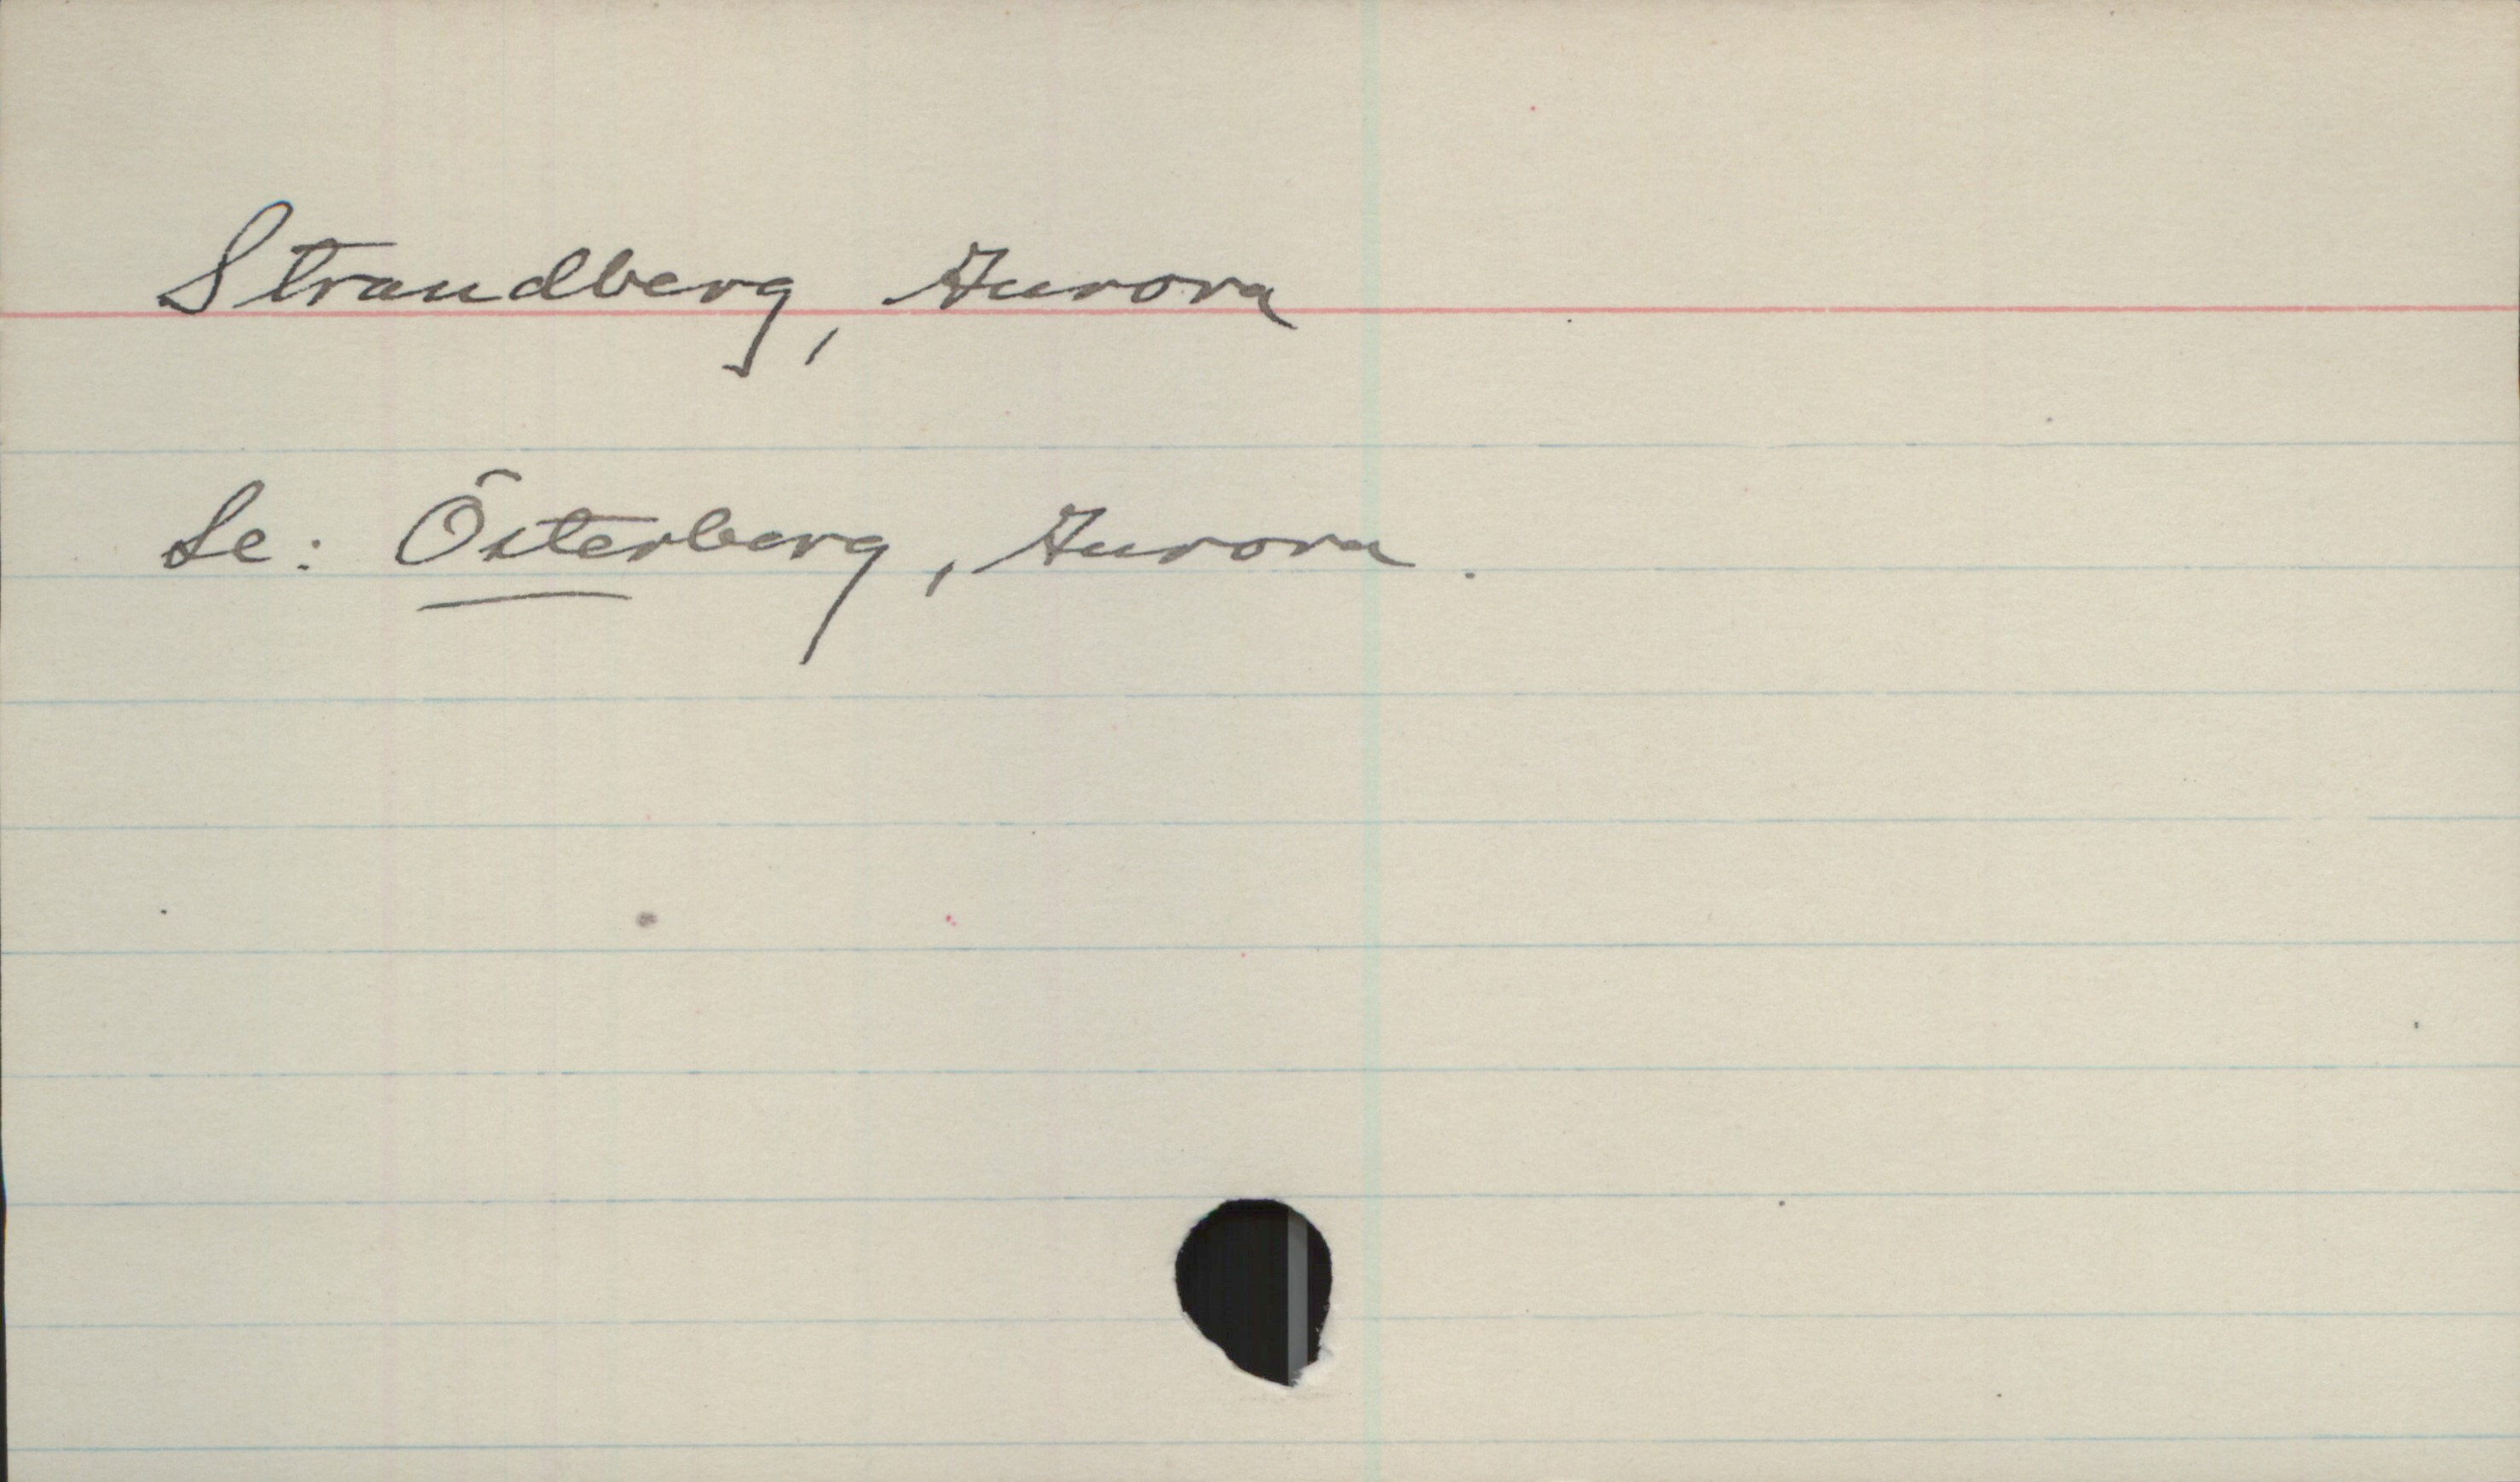 Strandberg, Aurora
Se: Österberg, Aurora.